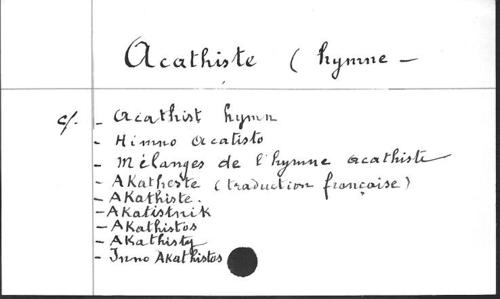 Acathiste ( hymne -
cf. - Acathist hymn
- Himno Acatisto
- Mélanges de l'hymne acathiste
- AKatheste (traduction française)
- AKathiste.
- AKatistnik
- AKathistos
- AKathisty
- Inno AKathistos